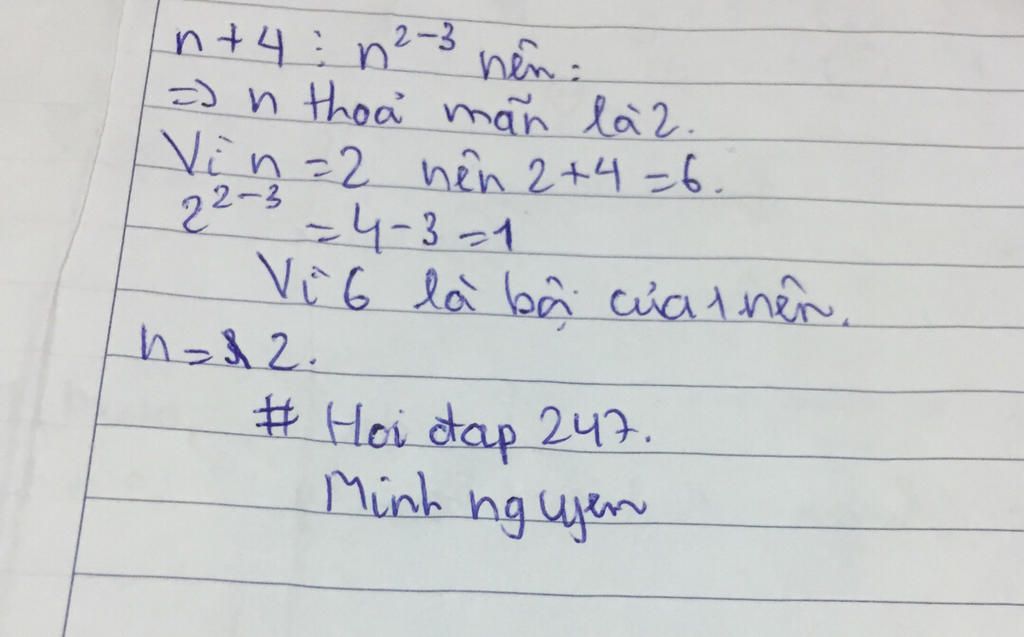 n + 4 ⋮ n²⁻³ nên:
=> n thoả mãn là 2.
Vì n = 2 nên 2 + 4 = 6.
2²⁻³ = 4 - 3 = 1
Vì 6 là bội của 1 nên.
n = 2.
# Hoi đap 247.
Minh nguyen